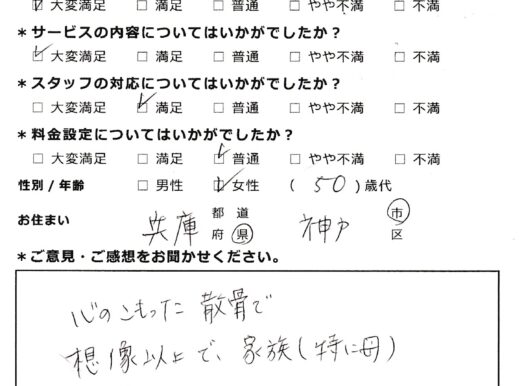 ☑ 大変満足 □ 満足 □ 普通 □ やや不満 □ 不満
＊サービスの内容についてはいかがでしたか？
☑ 大変満足 □ 満足 □ 普通 □ やや不満 □ 不満
＊スタッフの対応についてはいかがでしたか？
□ 大変満足 ☑ 満足 □ 普通 □ やや不満 □ 不満
＊料金設定についてはいかがでしたか？
□ 大変満足 □ 満足 ☑ 普通 □ やや不満 □ 不満
性別/年齢 □ 男性 ☑ 女性 (50)歳代
お住まい 兵庫 都道府県 神戸 市区
＊ご意見・ご感想をお聞かせください。
心のこもった散骨で
想像以上で、家族(特に母)